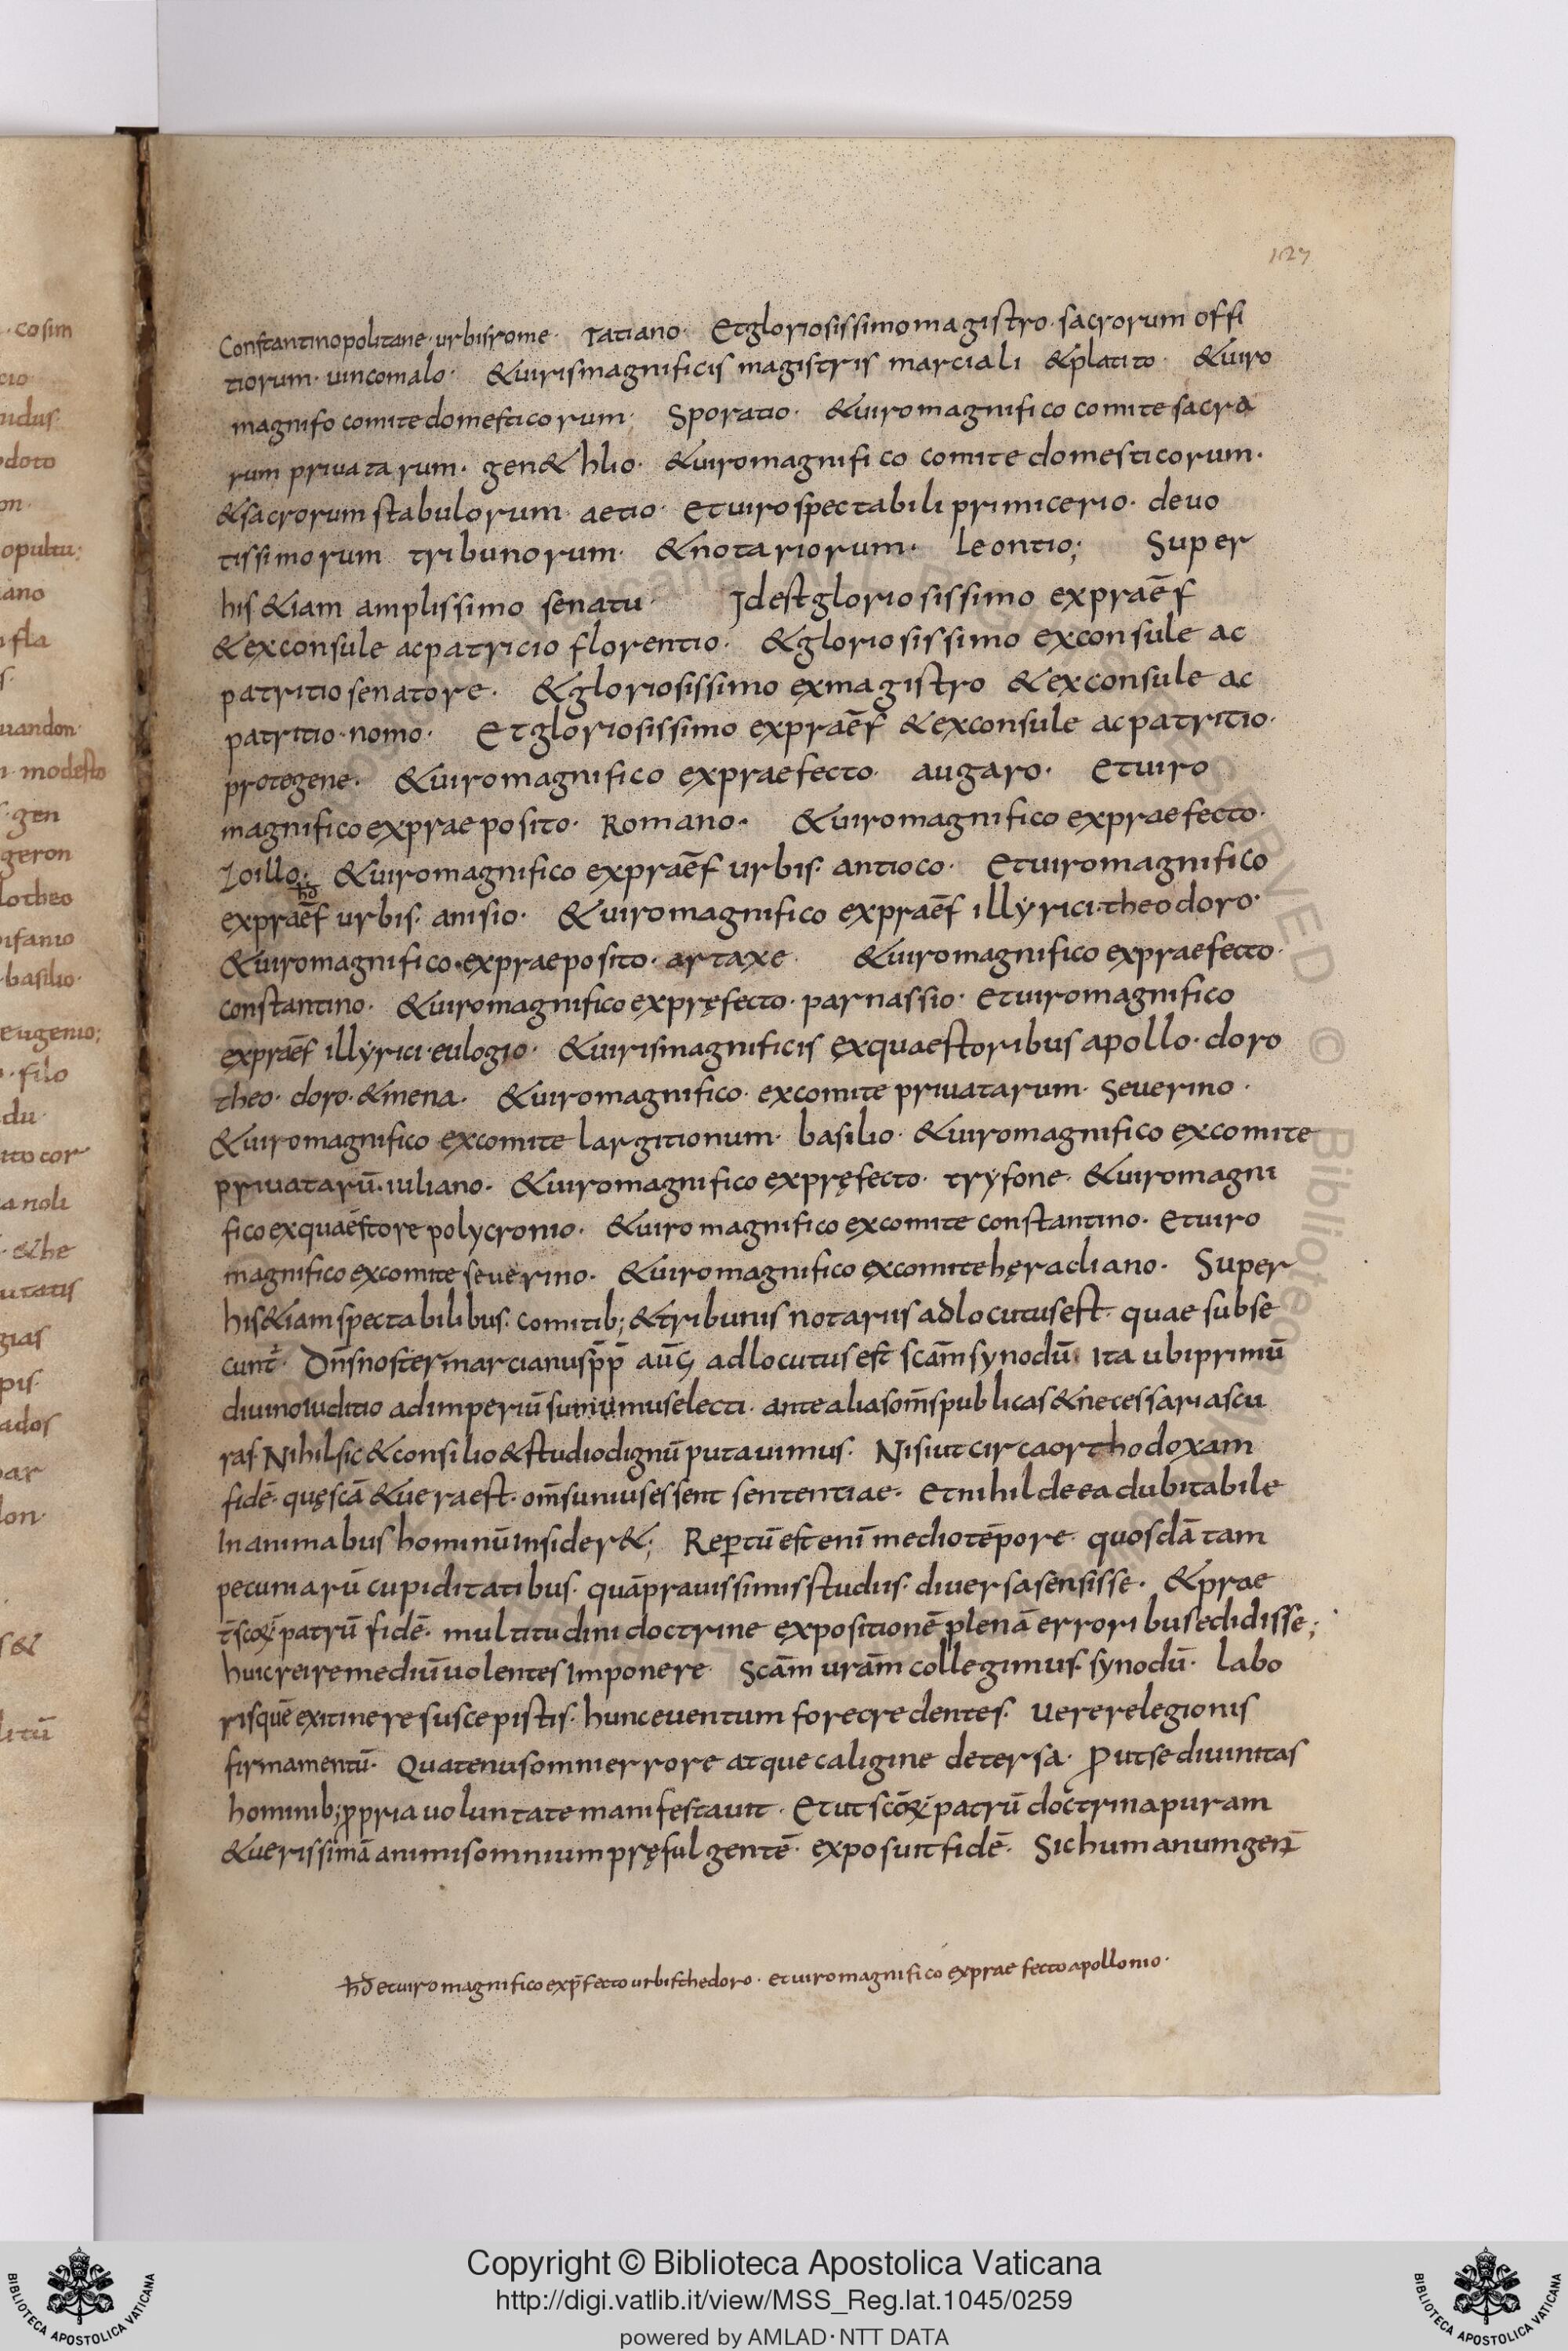 127
Constantinopolitane· urbis rome· Tatiano· Et gloriosissimo magistro· sacrorum offi
tiorum· uincomalo· & uiris magnificis magistris marciali & platito· & uiro
magnifo comite domesticorum; Sporatio· & uiro magnifico comite sacra
rum priuatarum· gen&hlio· & uiro magnifico comite domesticorum·
& sacrorum stabulorum· aetio· Et uiro spectabili primicerio· deuo
tissimorum tribunorum· & notariorum· leontio; Super
his &iam amplissimo senatu· Idest gloriosissimo expraēf
& exconsule ac patricio florentio· & gloriosissimo exconsule ac
patritio senatore· & gloriosissimo exmagistro & exconsule ac
patritio· nomo· Et gloriosissimo expraēf & exconsule ac patritio·
protogene· & uiro magnifico expraefecto· augaro· Et uiro
magnifico expraeposito· Romano· & uiro magnifico expraefecto·
Zoillo; & uiro magnifico expraēf urbis· antioco· Et uiro magnifico
expraēf urbis· anisio· & uiro magnifico expraēf illyrici· theodoro·
& uiro magnifico· expraeposito· artaxe· & uiro magnifico expraefecto·
constantino· & uiro magnifico expręfecto· parnassio· Et uiro magnifico
expraēf illyrici· eulogio· & uiris magnificis exquaestoribus apollo· doro
theo· doro· & mena· & uiro magnifico· excomite priuatarum· Seuerino·
& uiro magnifico excomite largitionum· basilio· & uiro magnifico excomite
priuatarū· iuliano· & uiro magnifico expręfecto· tryfone· & uiro magni
fico exquaestore polycronio· & uiro magnifico excomite constantino· Et uiro
magnifico excomite seuerino· & uiro magnifico excomite hęracliano· Super
his &iam spectabilibus· comitib; & tribunis notariis adlocutus est· quae subse
cunt· Dn̄s noster marcianus p̄p̄ aūg adlocutus est scām synodū· Ita ubi primū
diuino iuditio ad imperiū sumus electi· ante alias om̄s publicas & necessarias cu
ras Nihil sic & consilio & studio dignū putauimus· Nisi ut circa orthodoxam
fidē· quę scā & uera est· om̄s unius essent sententiae· Et nihil de ea dubitabile
In animabus hominū insider&; Rep̄tū est enī medio tēpore· quosdā tam
pecuniarū cupiditatibus· quā prauissimis studiis· diuersa sensisse· & prae
t̄ scoꝝ patrū fidē· multitudini doctrine expositionē plenā erroribus edidisse;
huic rei remediū uolentes Imponere· Scām urām collegimus synodū· labo
risquē exitinere suscepistis· hunc euentum fore credentes· Uere relegionis
firmamentū· Quatenus omni errore atque caligine detersa· Put se diuinitas
hominib; ꝓpria uoluntate manifestauit· Et ut scōꝝ patrū doctrina puram
& uerissimā animis omnium pręfulgentē· exposuit fidē· Sic humanum gen̄
hđ et uiro magnifico exp̄fecto urbis thedoro· et uiro magnifico exprae fecto apollonio·
Copyright © Biblioteca Apostolica Vaticana
http://digi.vatlib.it/view/MSS_Reg.lat.1045/0259
powered by AMLAD·NTT DATA
BIBLIOTECA APOSTOLICA VATICANA
BIBLIOTECA APOSTOLICA VATICANA